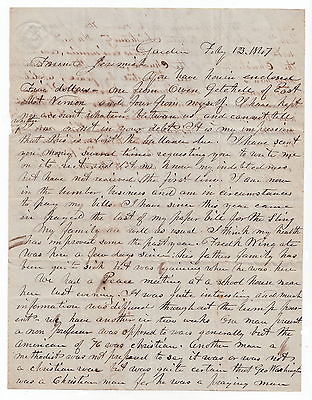 Gardin Feby 123, 1847
Friend Jeremiah
You have herein enclosed
Five dollars - one from Owen Getchell of East
Mot Vernon and four from myself. I have kept
no account whatever between us and cannot tell
I owe or not in your debt. It is my impression
that this is about the ballance due. I have sent
you money several times requesting you to write me
to let me know my indebtedness
but have not received the first line. I am now
in the lumber business and am in circumstances
to pay my bills. I have since this year came
in prepaid the last of my paper bill for the
My family are well as usual. I think my health
has improved some the past year. French Wingate
was here a few days since. His fathers family has
been quite sick but was gaining when he was here
We had a Peace meeting at a school house near
here last evening. It was quite interesting and much
information was diffused throughout the present
we have another in two weeks. One man present
a non professor was opposed to war generally but the
american of 76 was christian. Another man a
methodist was not prepared to say it was or was not
a christian war but was quite certain that Geo Washington
was a Christian man for he was a praying man